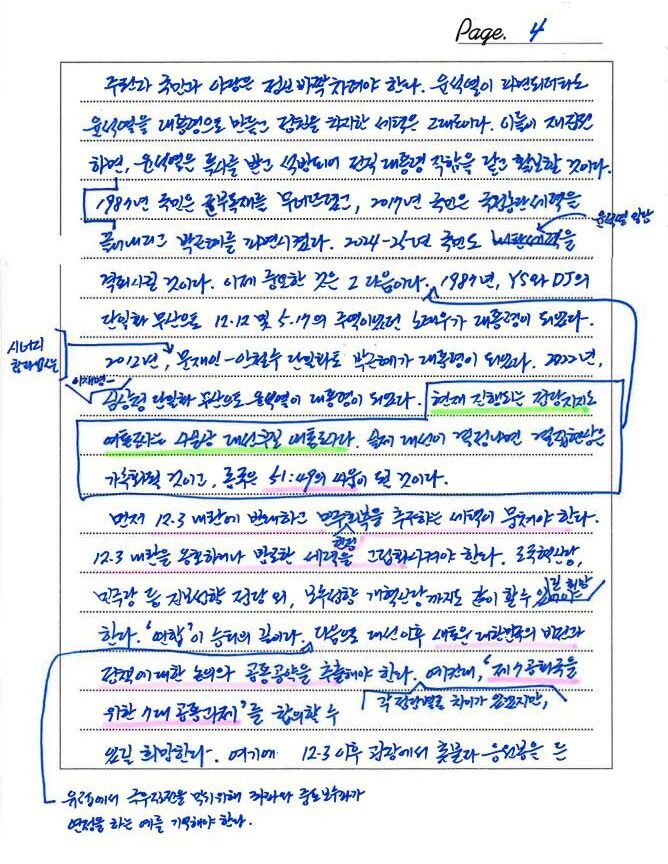 Page. 4
주권자 국민과 야당은 정신 바짝 차려야 한다. 윤석열이 파면되더라도
윤석열을 대통령으로 만들고 권한을 차지한 세력은 그대로이다. 이들이 재집권
하면, 윤석열은 특사를 받고 석방되어 전직 대통령 직함을 달고 활보할 것이다.
1987년 국민은 군부독재를 무너뜨렸고, 2017년 국민은 국정농단 세력을
윤석열 일당
끌어내리고 박근혜를 파면시켰다. 2024-25년 국민도 내란세력을
격퇴시킬 것이다. 이제 중요한 것은 그 다음이다. 1987년, YS와 DJ의
단일화 무산으로 12.12 및 5.17의 주역이었던 노태우가 대통령이 되었다.
시너지
2012년, 문재인-안철수 단일화도 박근혜가 대통령이 되었다. 2022년,
이재명-
심상정 단일화 무산으로 윤석열이 대통령이 되었다. 현재 진행되는 정당지지도
여론조사는 대선후보 여론조사가 실제 대선이 결정나면 결집현상은
가속화될 것이고, 종국은 51:49의 싸움이 될 것이다.
먼저 12.3 내란에 반대하고 민주회복을 추구하는 세력이 뭉쳐야 한다.
헌정
12.3 내란을 옹호하거나 세력을 고립화시켜야 한다. 조국혁신당,
민주당 등 진보성향 정당 외, 보수성향 개혁신당까지도 같이 할 수
길 희망
한다. '연합'이 승리의 길이다. 다음으로 대선 이후 새로운 대한민국의 비전과
정책에 대한 논의와 공통공약을 추출해야 한다. 예컨대, "제7공화국을
위한 7대 공통과제"를 합의할 수
각 정당별로 차이가 있겠지만,
있길 희망한다. 여기에 12.3 이후 광장에서 촛불과 응원봉을 든
유럽에서 극우집권을 막기 위해 좌파와 중도보수파가
연정을 하는 예를 기억해야 한다.